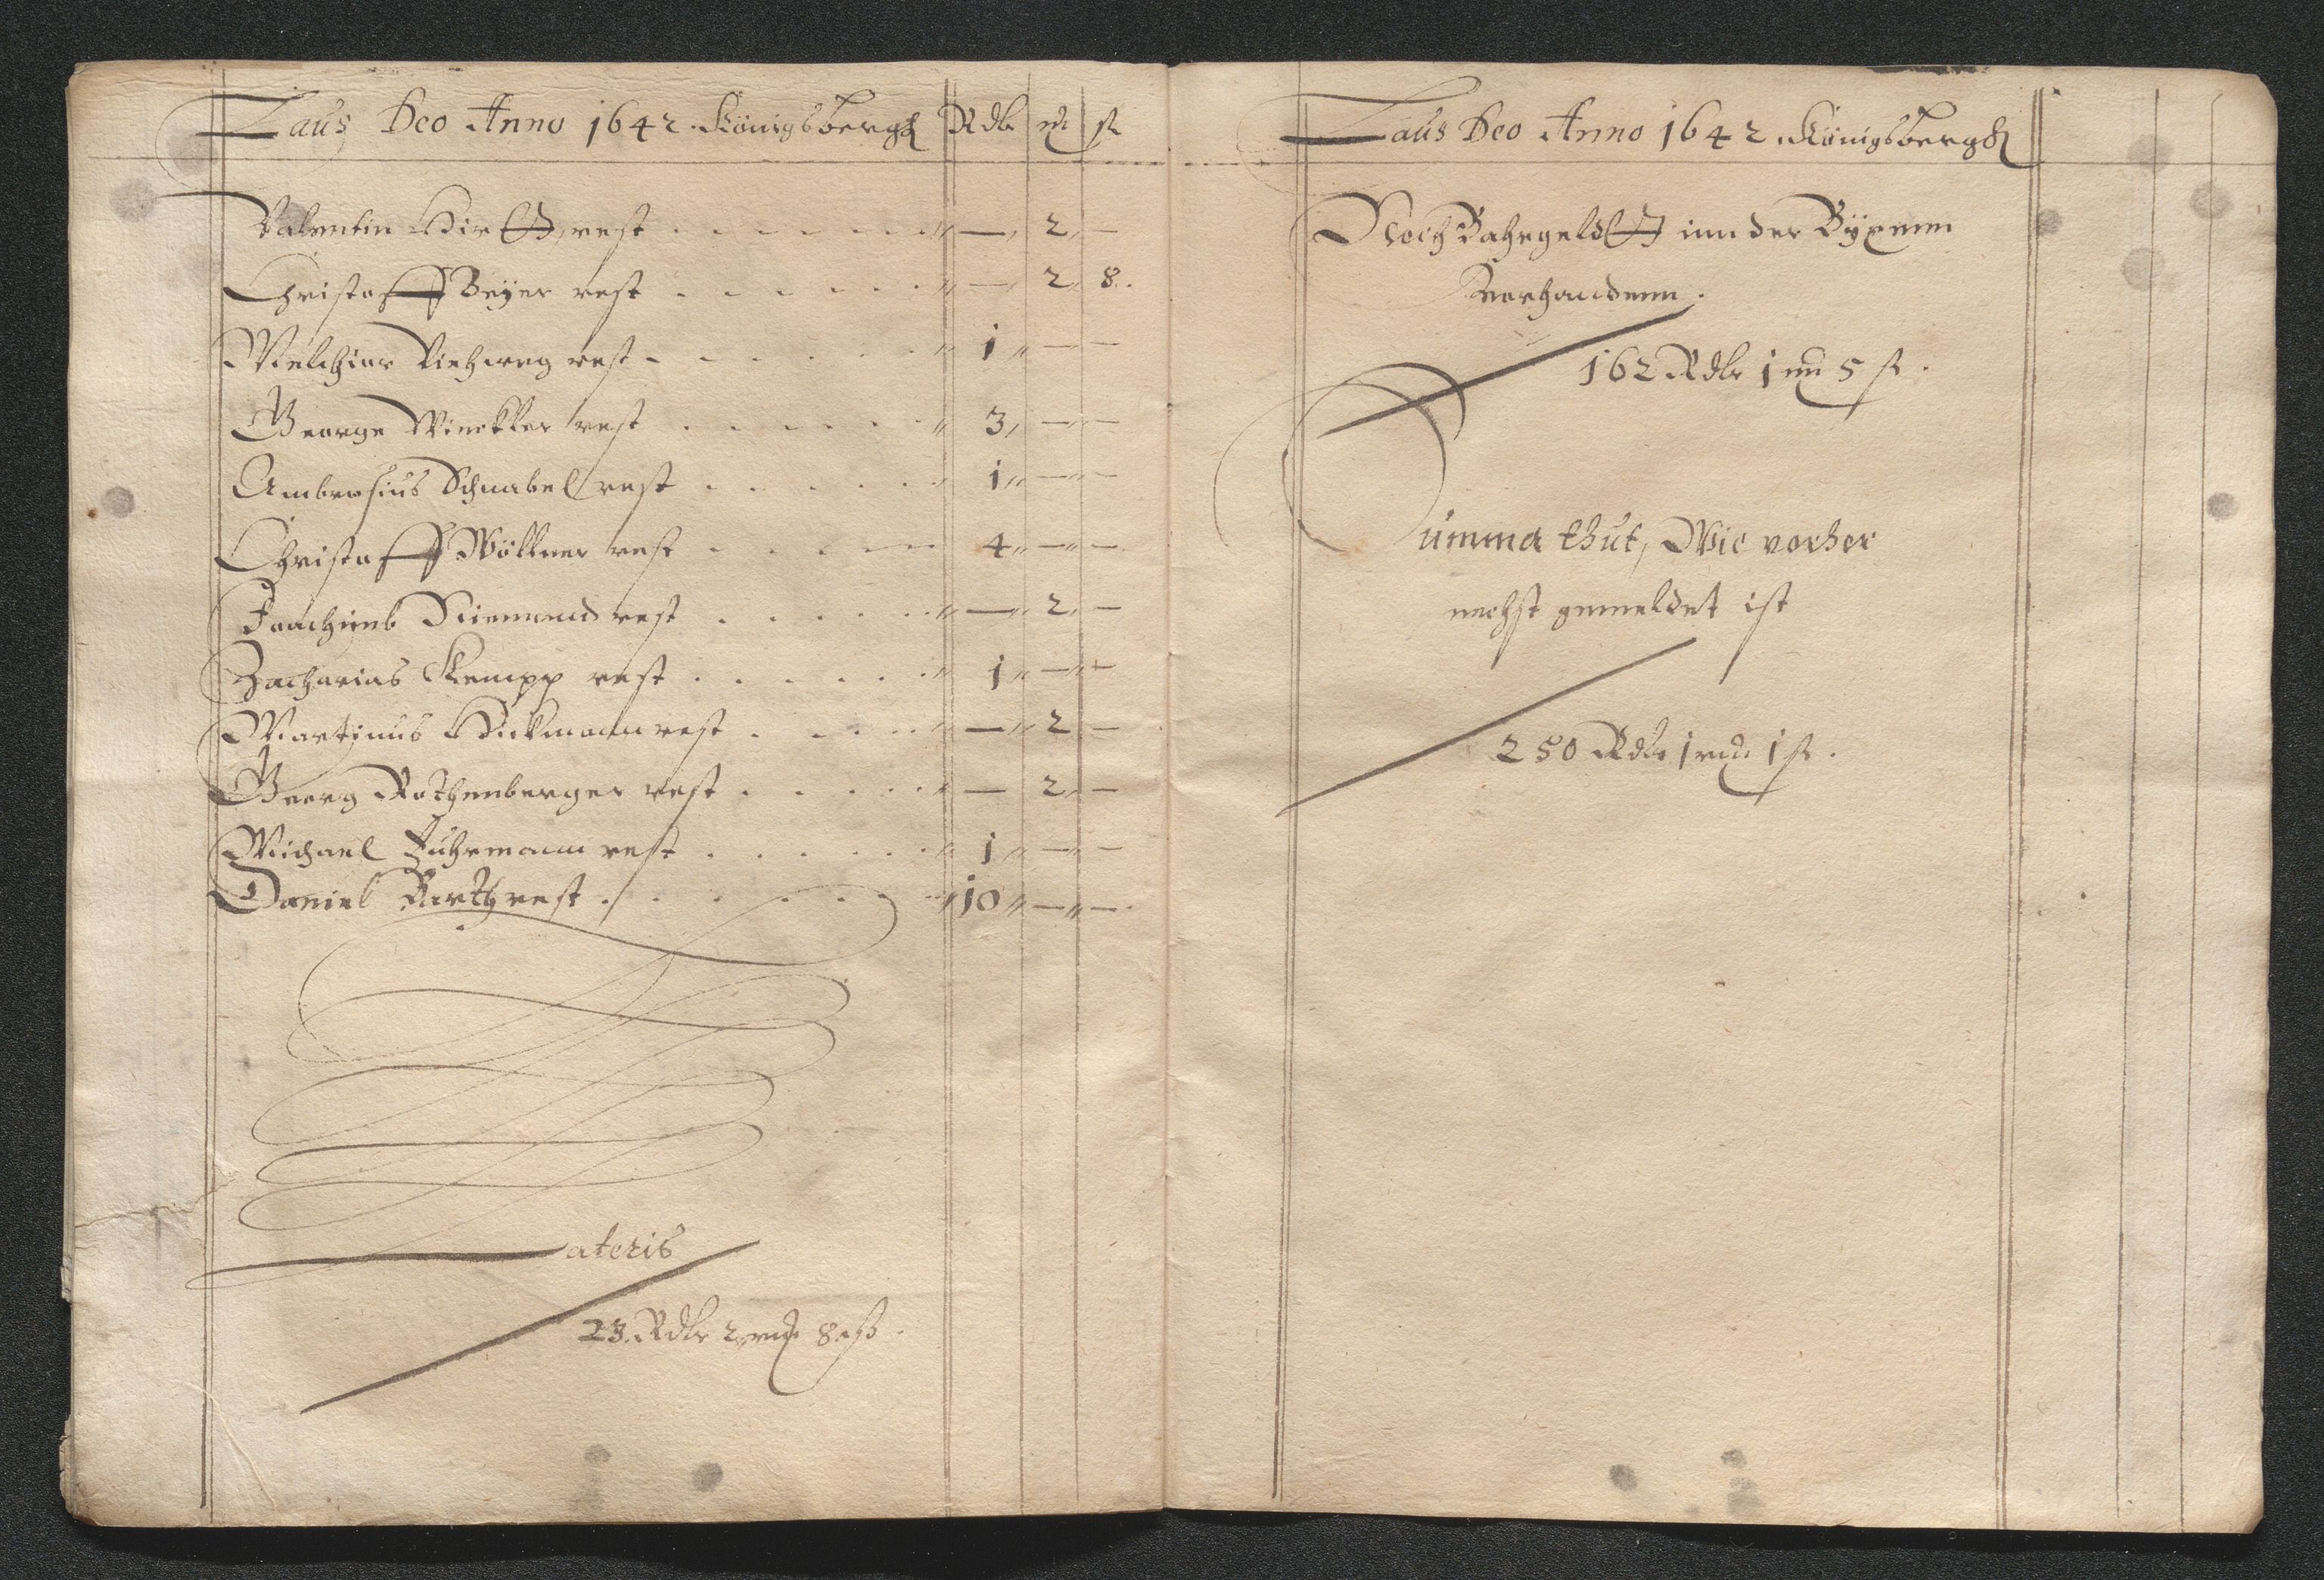 Laus Deo Anno 1642. Königsbergk Rdlr mk ß
Valentin Hirsch, rest . . . . . . . " — " 2 " —
Christoff Beyer rest . . . . . . " — " 2 " 8.
Melchior Viehweg rest - . . . . . " 1 " — " —
George Winckler rest . . . . . . " 3 " — " —
Ambrosius Schnabel rest . . . . . . 1 " — " —
Christoff Wölkner rest . . . . . 4 " — " —
Joachimb Niemand rest . . . . . . " — " 2 " —
Zacharias Kempp rest . . . . . . " 1 " — " —
Martinus Hickmann rest . . . . . " — " 2 " —
Georg Rothenberger rest . . . . . " — 2 " —
Michael Fuhrmann rest . . . . . . " 1 " — " —
Daniel Barth rest . . . . . . " 10 " — " — .
Lateris
23. Rdlr 2 mk 8 ß.
Laus Deo Anno 1642. Königsbergk
Noch Bahrgeldt inn der Büxenn
Vorhandenn.
162 Rdlr 1 mk 5 ß.
Summa thut, Wie vorher
nechst gemeldet ist
250 Rdlr 1 mk 1 ß.